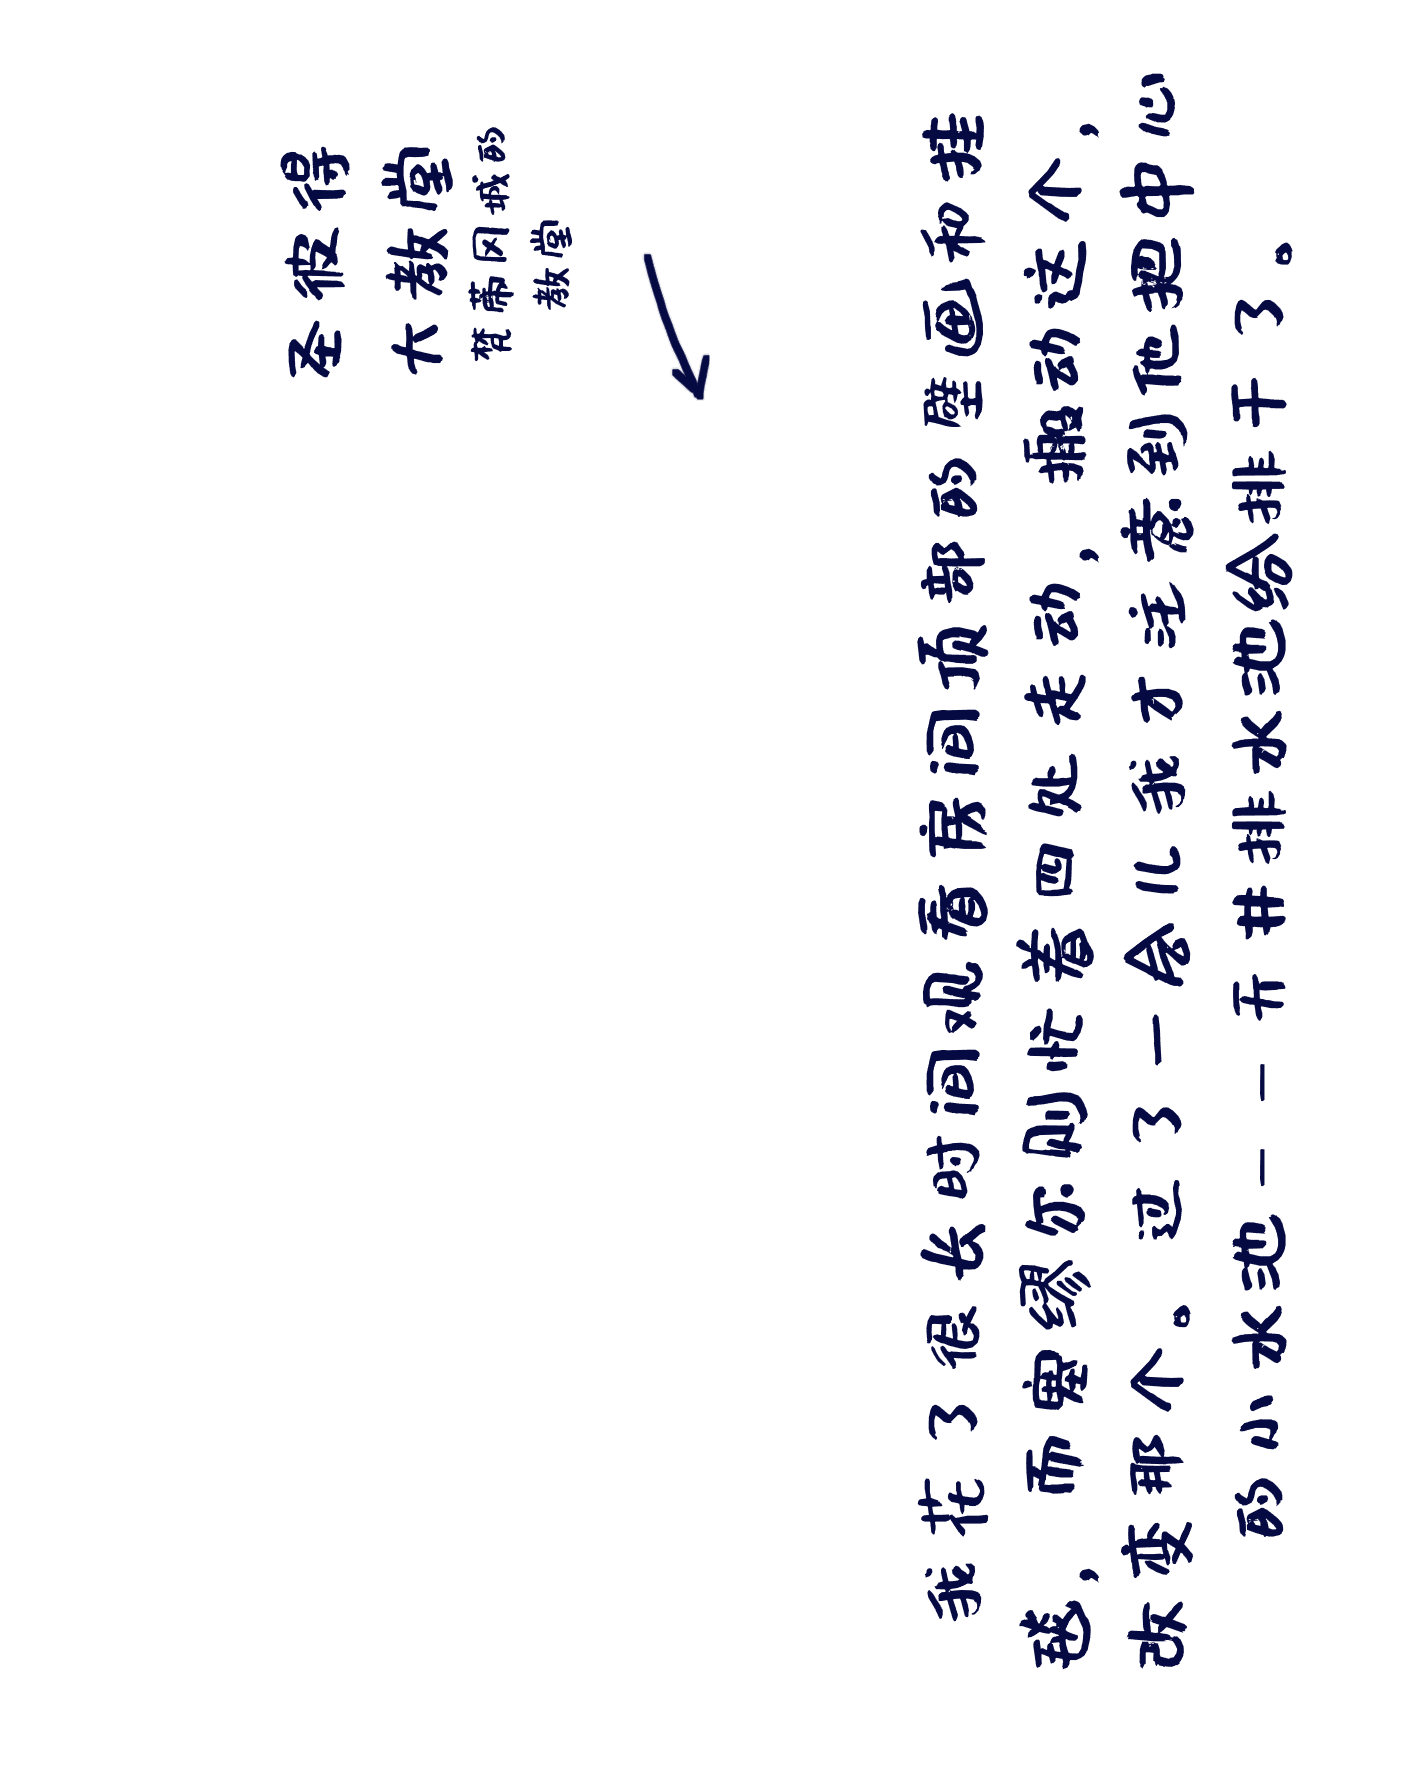 圣彼得
大教堂
梵蒂冈城的
教堂
我花了很长时间观看房间顶部的壁画和挂
毯，而塞缪尔则忙着四处走动，搬动这个，
改变那个。过了一会儿我才注意到他把中心
的小水池——开井排水池给排干了。